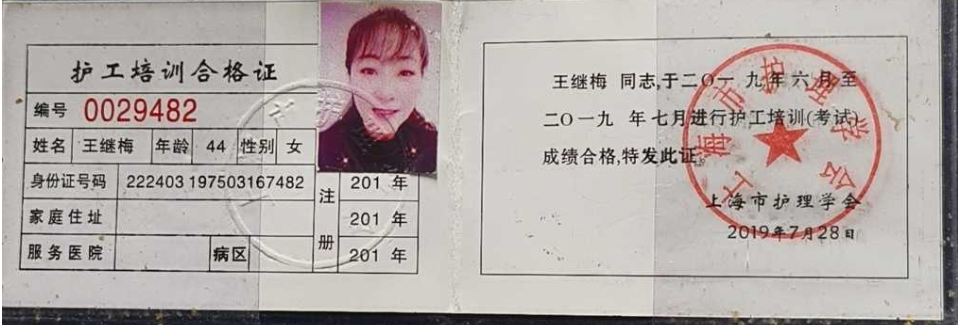 护工培训合格证
编号 0029482
姓名 王继梅 年龄 44 性别 女
身份证号码 222403 197503167482
家庭住址
服务医院 病区
注册
201 年
201 年
201 年
王继梅 同志,于二〇一九年六月至
二〇一九 年七月进行护工培训(考试)
成绩合格,特发此证。
上海市护理学会
2019年7月28日
上海市护理学会